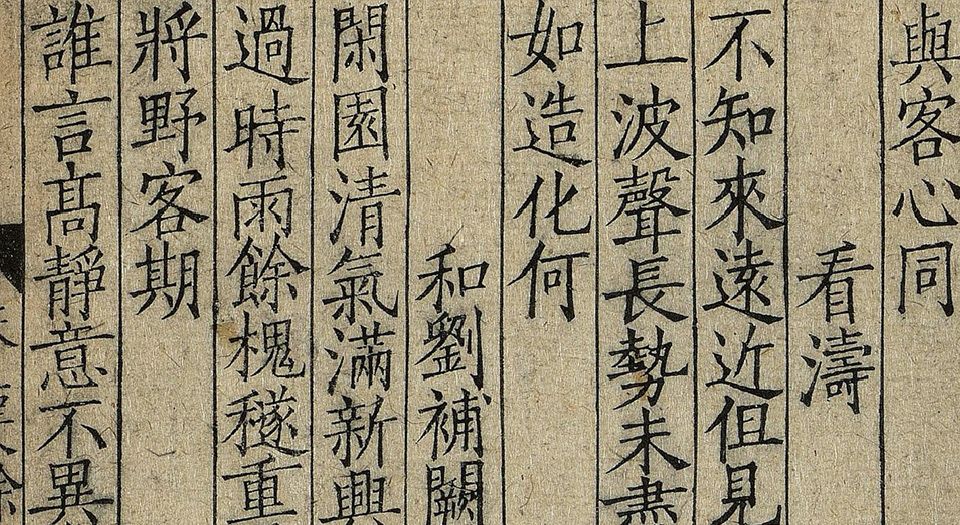 與客心同
看濤
不知來遠近但見
上波聲長勢未盡
如造化何
和劉補闕
閑園清氣滿新興
過時雨餘槐穟重
將野客期
誰言髙靜意不異